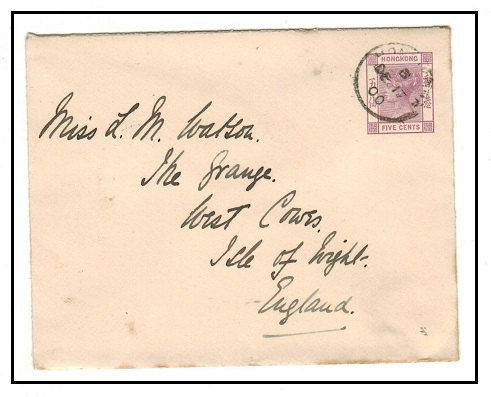 HONGKONG
FIVE CENTS
B
DE 17
00
Miss L. M. Watson.
The Grange.
West Cowes.
Isle of Wight.
England.